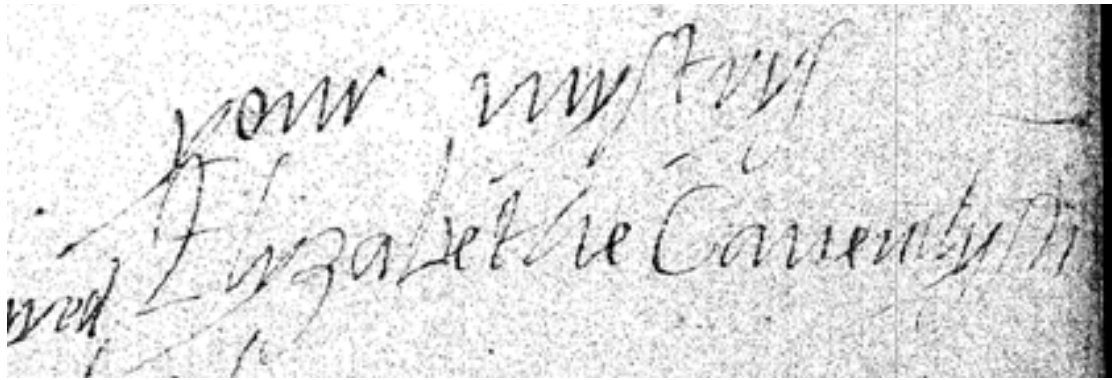 your mystrys
Elyzabethe Cauendysh